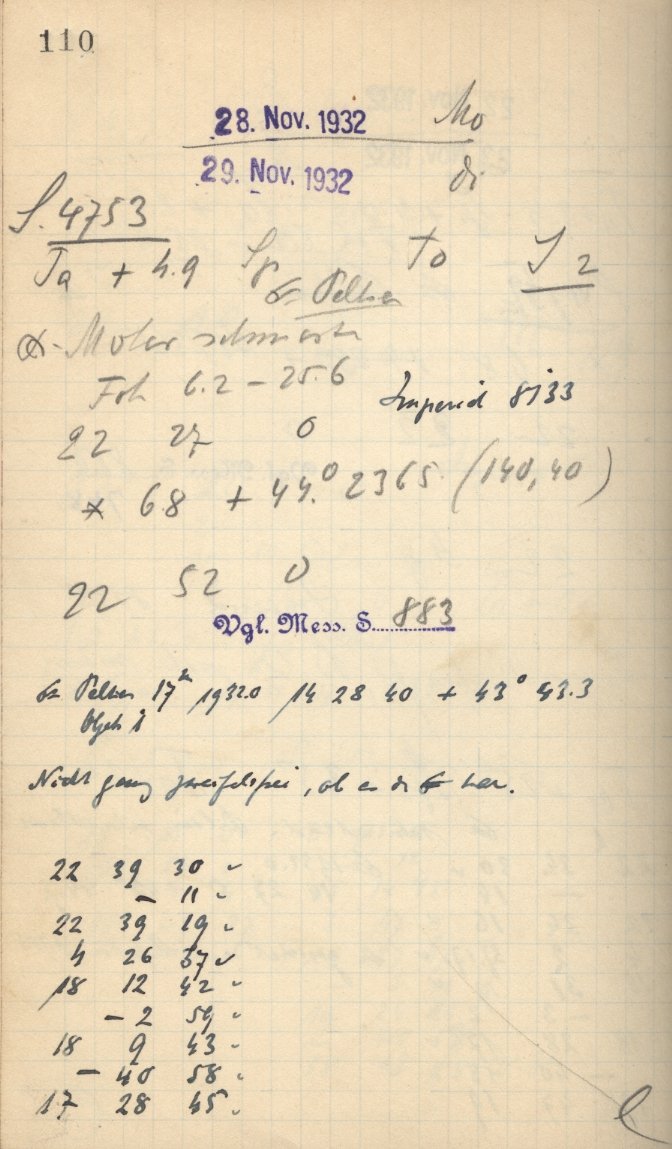 110
28. Nov. 1932 Mo
29. Nov. 1932 Di
S. 4753
Ta + 4.9 Sp To S 2
Peltier
α - Motor schmierte
Foh 6.2 - 25.6
Imperial 8133
22 27 0
* 6.8 + 44.° 2365 (140, 40)
22 52 0
Vgl. Mess. S. 883
Peltier 17ᵐ 1932.0 14 28 40 + 43° 43.3
Objekt i
Nicht ganz zweifelsfrei, ob es der war.
22 39 30 ✓
- 11 ✓
22 39 19 ✓
4 26 37 ✓
18 12 42 ✓
- 2 59 ✓
18 9 43 ✓
- 40 58 ✓
17 28 45 ✓